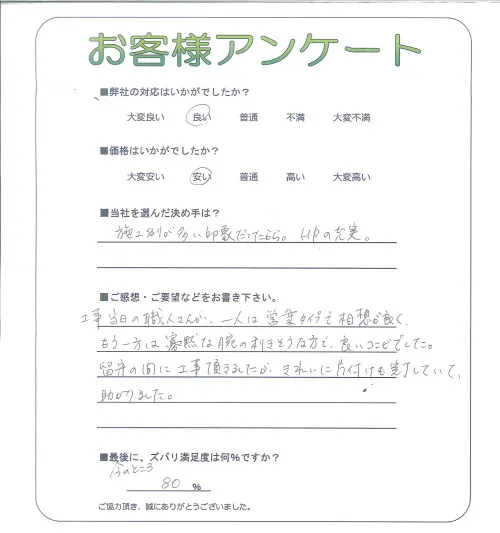 お客様アンケート
■弊社の対応はいかがでしたか？
大変良い 良い 普通 不満 大変不満
■価格はいかがでしたか？
大変安い 安い 普通 高い 大変高い
■当社を選んだ決め手は？
施工例が多い印象だったから。HPの充実。
■ご感想・ご要望などをお書き下さい。
工事当日の職人さんが、一人は営業タイプで相想が良く、
もう一方は寡黙な腕の利きそうな方で、良いコンビでした。
留守の間に工事頂きましたが、きれいに片付けも完了していて、
助かりました。
■最後に、ズバリ満足度は何%ですか？
今のところ
80 %
ご協力頂き、誠にありがとうございました。